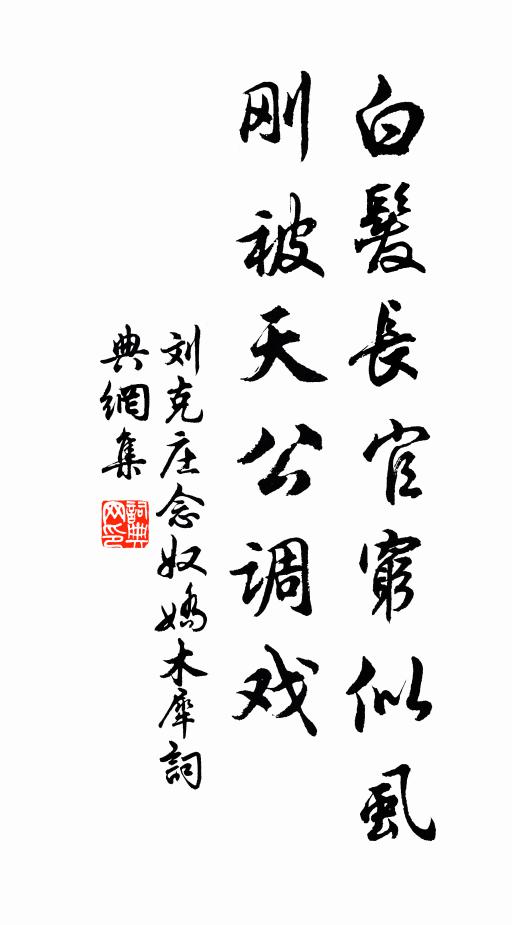 白髮長官窮似虱
刚被天公调戏
刘克庄念奴嬌木犀詞
典網集
詞典网印